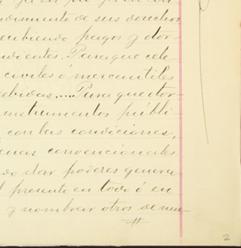 dimiento de sus derechos
recibiendo pagos y otor
Para que cele
civiles ó mercantiles
Para que otor
instrumentos públi
con las condiciones,
convencionales
dar poderes genera
presente en todo ó en
y nombrar otros de nue
2